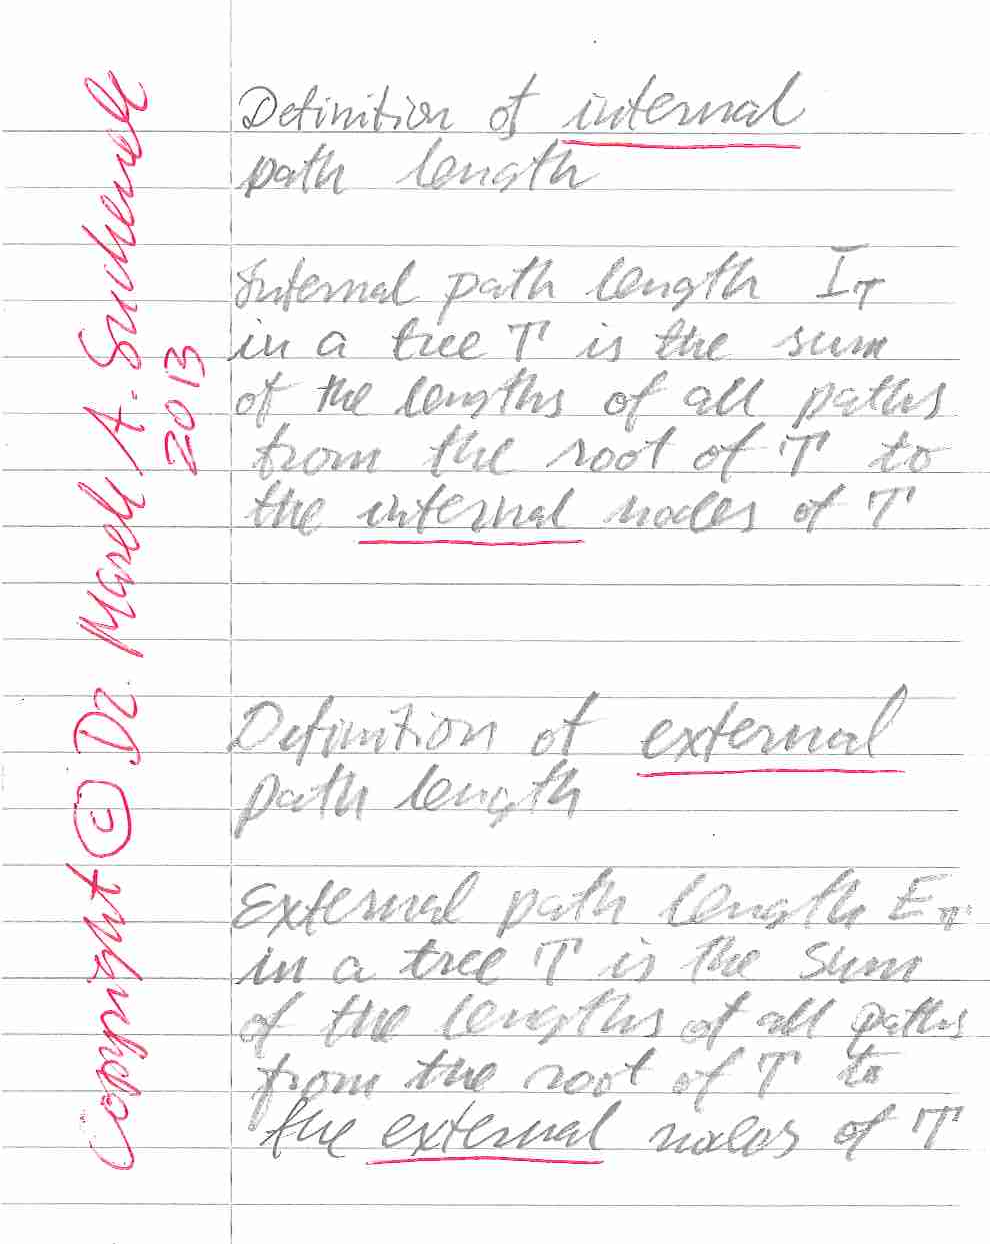 Definition of internal
path length
Internal path length I_T
in a tree T is the sum
of the lengths of all paths
from the root of T to
the internal nodes of T
Definition of external
path length
External path length E_T
in a tree T is the sum
of the lengths of all paths
from the root of T to
the external nodes of T
Copyright © Dr. Marek A. Suchenek
2013